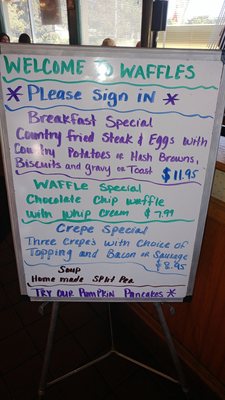 Welcome to Waffles
* Please Sign in *
Breakfast Special
Country Fried Steak & Eggs with
Country Potatoes or Hash Browns,
Biscuits and gravy or Toast $11.95
Waffle Special
Chocolate Chip Waffle
with Whip Cream $7.99
Crepe Special
Three Crepe's with Choice of
Topping and Bacon or Sausage
$8.95
Soup
Home made Split Pea
Try Our Pumpkin Pancakes *